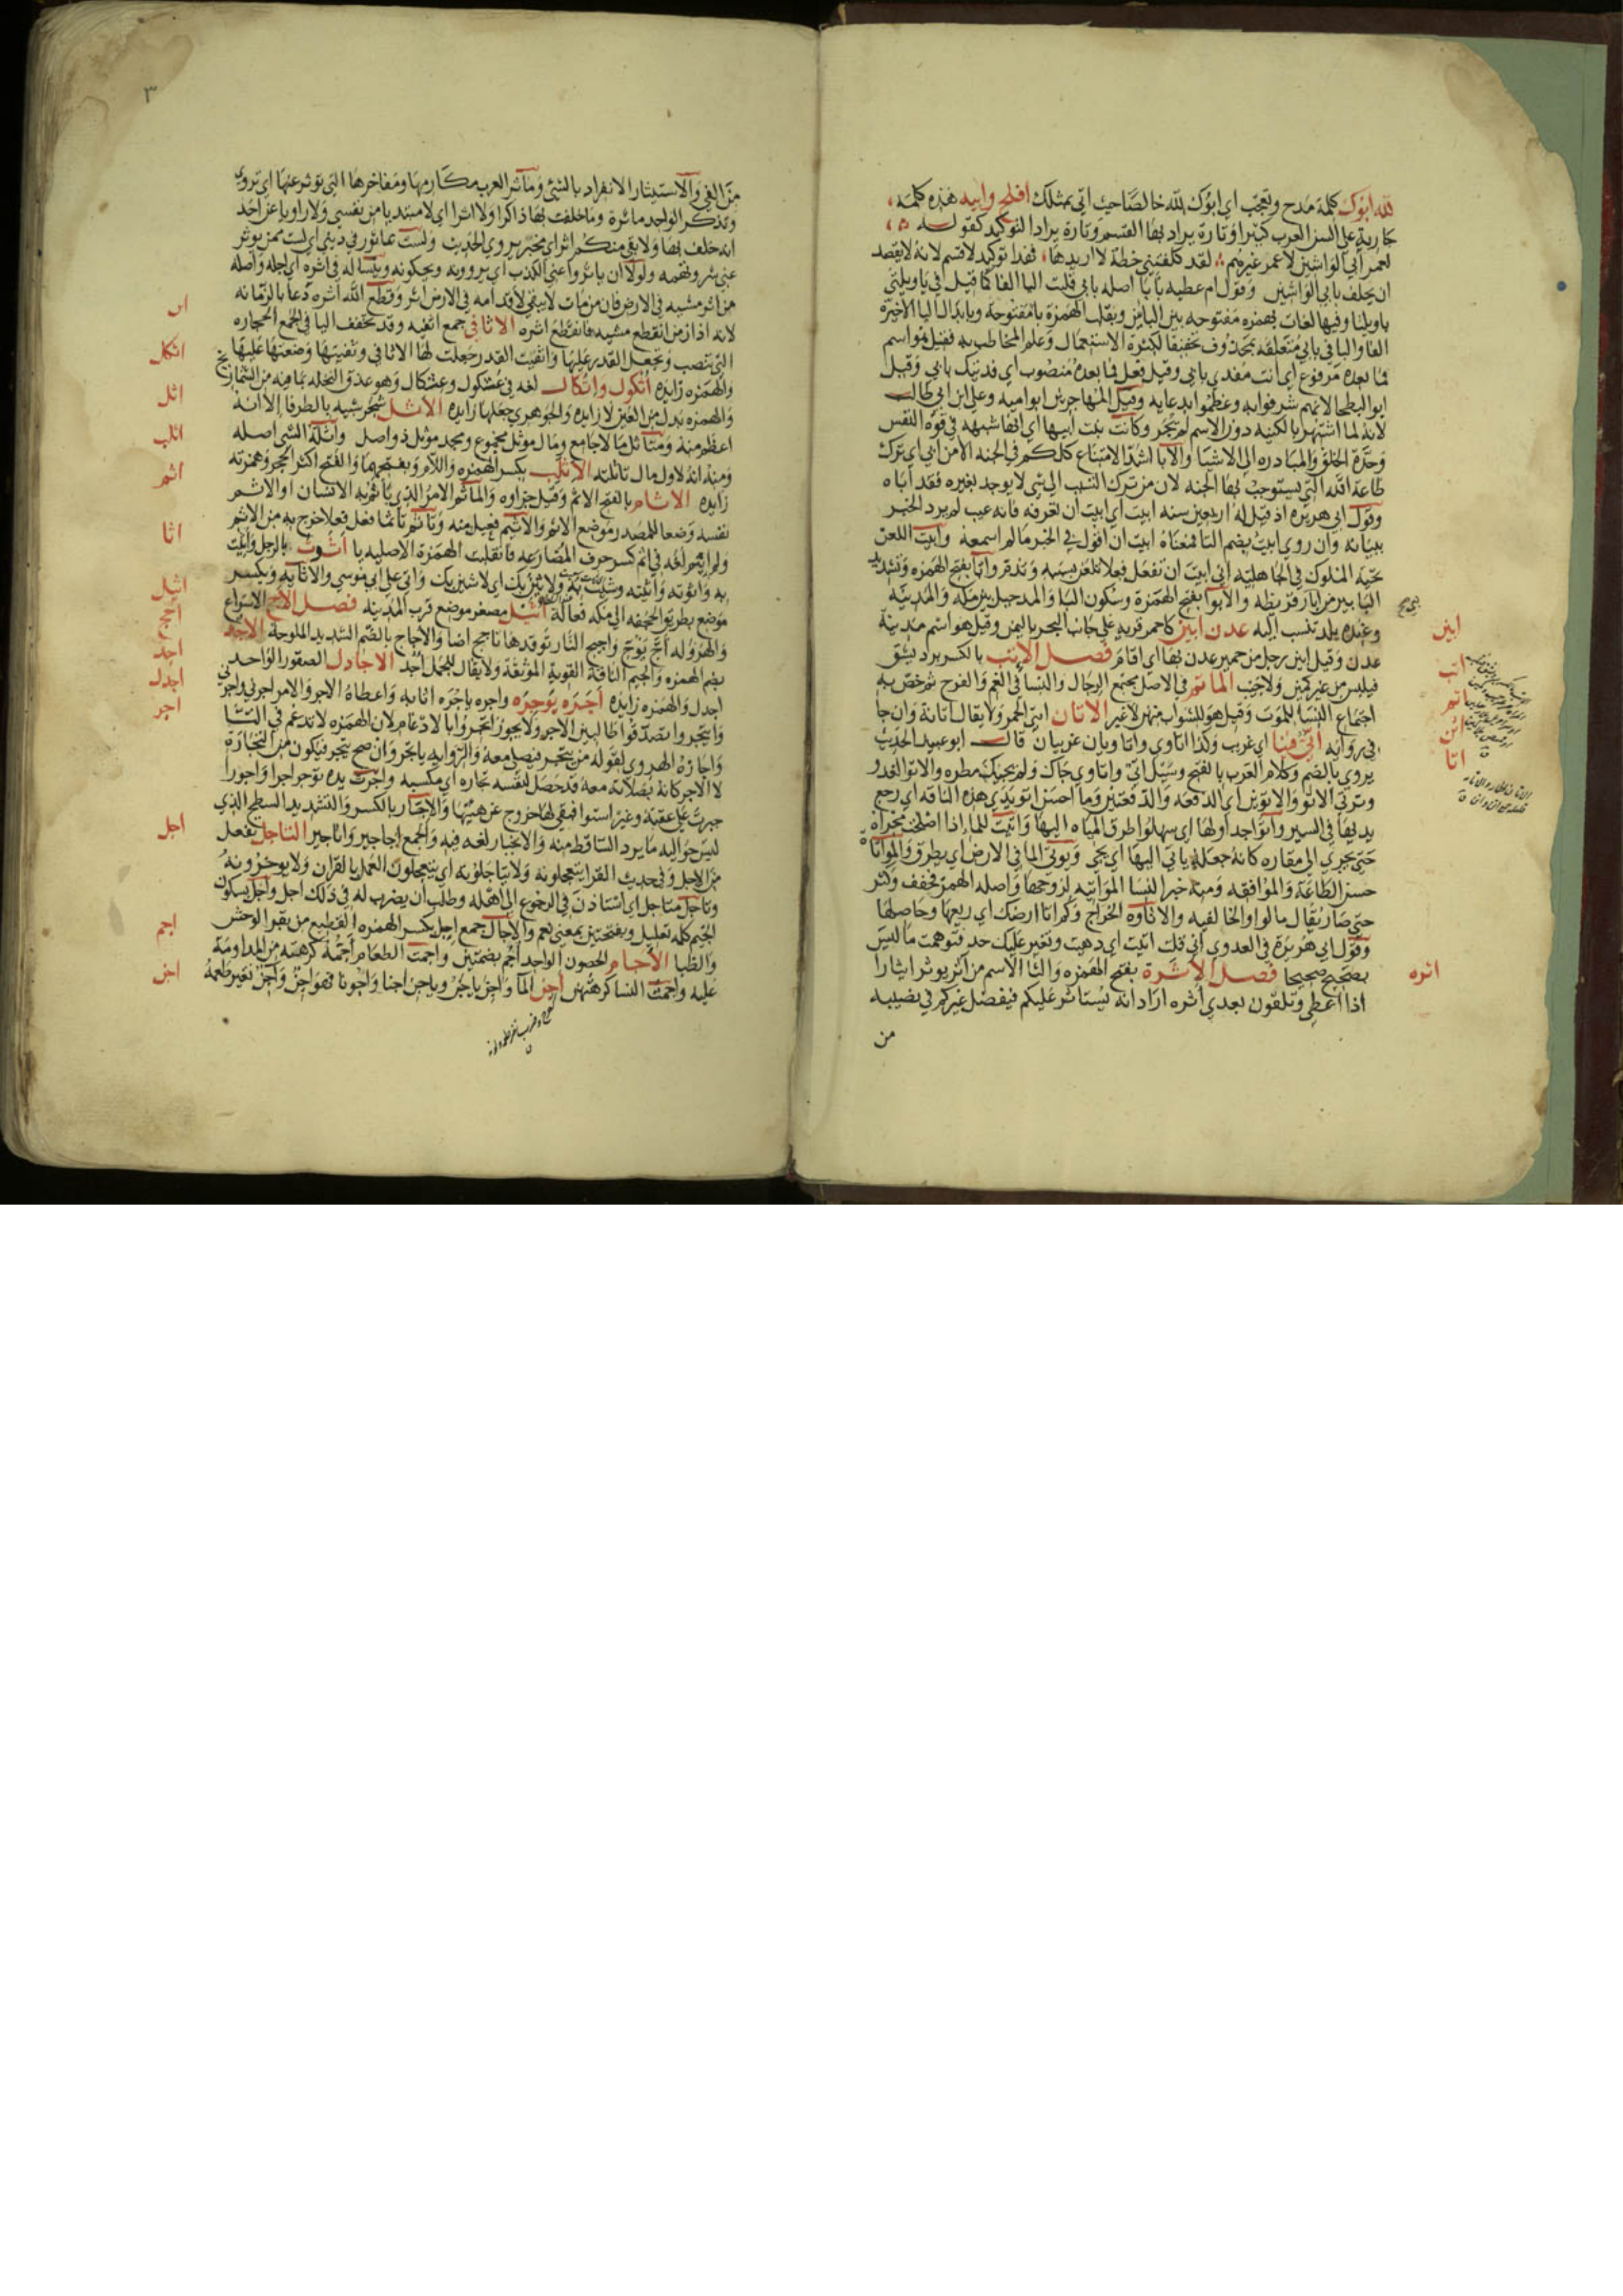 لله ابوك كلمة مدح وتعجب اي ابوك لله خالصا حيث اتى بمثلك افلح وابيه هذه كلمة
جارية على السن العرب كثيرا وتارة يراد بها القسم وتارة يراد التوكيد كقوله
لعمر ابي الواشين لا عمر غيرهم لقد كلفتني خطة لا اريدها فهذا توكيد لا قسم لانه لا يقصد
ان يحلف بابي الواشين وقول ام عطيه بابا اصله بابي قلبت اليا الفا كما قيل في ياويلتي
ياويلتا وفيها لغات بهمزه مفتوحه بين البايين وبقلب الهمزة يا مفتوحة وبابدال اليا الاخيرة
الفا والبا في بابي متعلقه بمحذوف تخفيفا لكثرة الاستعمال وعلم المخاطب به فقيل هو اسم
فما بعده مرفوع اي انت مفدي بابي وقيل فعل فما بعده منصوب اي فديتك بابي وقيل
ابو البطحا لانهم شرفوا به وعظموا بدعايه وقيل المهاجر بن ابو اميه وعلي ابن ابي طالب
لانه لما اشتهر بالكنيه دون الاسم لم تجر وكانت بنت ابيها اي انها شبهه في قوة النفس
وحدة الخلق والمبادره الى الاشيا والابا اشد الامتناع كلكم في الجنه الا من ابى اي ترك
طاعة الله التي يستوجب بها الجنه لان من ترك التسبب الى شي لا يوجد بغيره فقد اباه
وقول ابي هريره اذ قيل له اربعين سنه ابيت اي ابيت ان تعرفه فانه غيب لم يرد الخبر
ببيانه وان روي ابيت بضم التا فمعناه ابيت ان اقول في الخبر ما لم اسمعه وابيت اللعن
تحية الملوك في الجاهليه اي ابيت ان تفعل فعلا تلعن بسببه وتذم وابا بفتح الهمزه وتشديد
البا بير من ابار قريظه والابوا بفتح الهمزة وسكون البا والمد جبل بين مكة والمدينة
وعنده بلد تنسب اليه عدن ابين كاحمر قريه على جانب البحر باليمن وقيل هو اسم مدينة
عدن وقيل ابين رجل من حمير عدن بها اي اقام فصل الاتب بالكسر برد يشق
فيلبس من غير كمين ولا جيب الماتم في الاصل مجتمع الرجال والنسا في الغم والفرح ثم خص به
اجتماع النسا للموت وقيل هو للشواب منهن لا غير الاتان انثى الحمر ولا يقال اتانة وان جا
في روايه اتي فينا اي غريب وكذا اتاوي واتاويان غريبان قال ابو عبيد الحديث
يروي بالضم وكلام العرب بالفتح وسيل اتي واتاوي جاك ولم يجيك مطره والاتو العدو
حتى يجري الى مقاره كانه جعله ياتي اليها اي يجي ويوتي الما في الارض اي يطرق والمواتاة
حسن الطاعة والموافقه ومنه خير النسا المواتيه لزوجها واصله الهمز فخفف وكثر
حتى صار يقال بالواو الخالصه والاتاوه الخراج وكم اتا ارضك اي ريعها وحاصلها
وقول ابي هريرة في العدوى اني قلت اتيت اي دهيت وتغير عليك حسك فتوهمت ما ليس
بصحيح صحيحا فصل الاثرة بفتح الهمزه والثا الاسم من اثر يوثر ايثارا
اذا اعطى وتلقون بعدي اثره اراد انه يستاثر عليكم فيفضل غيركم في نصيبه
من
ابين
اتب
اتم
اتن
اتا
اثره
٣
من الفي والاستيثار الانفراد بالشي وماثر العرب مكارمها ومفاخرها التي توثر عنها اي تروى
وتذكر الواحد ماثرة وما حلفت بها ذاكرا ولا اثرا اي لا مبتديا من نفسي ولا راويا عن احد
انه حلف بها ولا بقي منكم اثر اي مخبر يروي الحديث ولست بماثور في ديني اي لست ممن يوثر
عني شر وتهمه ولولا ان ياثروا عني الكذب اي يروونه ويحكونه وينسا له في اثره اي اجله واصله
من اثر مشيه في الارض فان من مات لا يبقى لاقدامه في الارض اثر وقطع الله اثره دعا بالزمانه
لانه اذا زمن انقطع مشيه فانقطع اثره الاثافي جمع اثفيه وقد تخفف اليا في الجمع الحجاره
التي تنصب وتجعل القدر عليها واثفيت القدر جعلت لها الاثافي وثفيتها وضعتها عليها
والهمزه زايده اثكول واثكال لغه في عثكول وعثكال وهو عذق النخله بما فيه من الشماريخ
والهمزه بدل من العين لا زايده والجوهري جعلها زايده الاثل شجر شبيه بالطرفا الا انه
اعظم منه ومتاثل مالا جامع ومال موثل مجموع ومجد موثل ذو اصل واثلة الشي اصله
ومنه انه لاول مال تاثلته الاثلب بكسر الهمزه واللام وبفتحهما والفتح اكثر الحجر وهمزته
زايده الاثام بالفتح الاثم وقيل جزاوه والماثم الامر الذي ياثم به الانسان او الاثم
نفسه وضعا للمصدر موضع الاسم والاثيم فعيل منه وتاثم تاثما فعل فعلا خرج به من الاثم
ولم ايثم لغه في اثم كسر حرف المضارعه فانقلبت الهمزة الاصليه يا اثوت بالرجل واثيت
موضع بطريق الجحفه الى مكه فعالة اثيل مصغر موضع قرب المدينه فصل الاج الاسراع
والهروله اج يوج واجيج النار توقدها تاجج اضا والاجاج بالضم الشديد الملوحة الاجد
بضم الهمزه والجيم الناقة القوية الموثقة ولا يقال للجمل اجد الاجادل الصقور الواحد
اجدل والهمزه زايده اجره يوجره واجره ياجره اثابه واعطاه الاجر والامر اجرني واجرني
وايتجروا تصدقوا طالبين الاجر ولا يجوز اتجروا بالادغام لان الهمزه لا تدغم في التا
واجازه الهروي لقوله من يتجر فيصلي معه والروايه ياتجر وان صح يتجر فيكون من التجارة
لا الاجر كانه بصلاته معه قد حصل لنفسه تجاره اي مكسبه واجرت يده توجر اجرا واجورا
جبرت على عقدة وغير استوا فبقي لها خروج عن هيئتها والاجار بالكسر والتشديد السطح الذي
ليس حواليه ما يرد الساقط منه والانجار لغه فيه والجمع اجاجير واناجير التاجل تفعل
من الاجل وفي حديث القرا يتعجلونه ولا يتاجلونه اي يتعجلون العمل بالقران ولا يوخرونه
وتاجل متاجل اي استاذن في الرجوع الى اهله وطلب ان يضرب له في ذلك اجل واجل بسكون
الجيم كلمه تعليل وبفتحتين بمعنى نعم والاجال جمع اجل بكسر الهمزه القطيع من بقر الوحش
والظبا الاجام الحصون الواحد اجم بضمتين واجمت الطعام اجمه كرهته من المداومة
عليه واجمت النسا كرهتهن اجن الما واجن ياجن وياجن اجنا واجونا فهو اجن واجن تغير طعمه
اثر
اثكل
اثل
اثلب
اثم
اثا
اثيل
اجج
اجد
اجدل
اجر
اجل
اجم
اجن